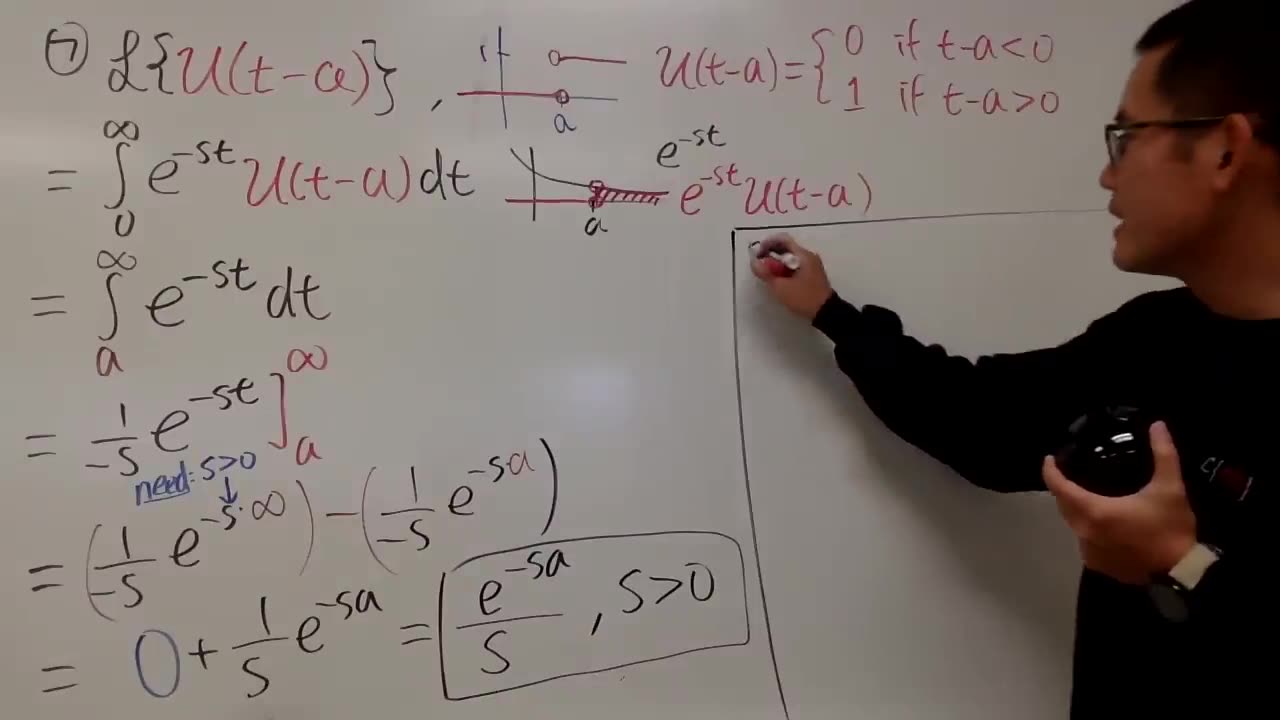 ⑦ ℒ{u(t-a)}, if a u(t-a) = { 0 if t-a<0
1 if t-a>0
= ∫₀^∞ e^{-st} u(t-a) dt a e^{-st}
e^{-st} u(t-a)
= ∫ₐ^∞ e^{-st} dt
= 1/-s e^{-st} ]ₐ^∞
need: s>0
= (1/-s e^{-s·∞}) - (1/-s e^{-sa})
= 0 + 1/s e^{-sa} = e^{-sa}/s , s>0